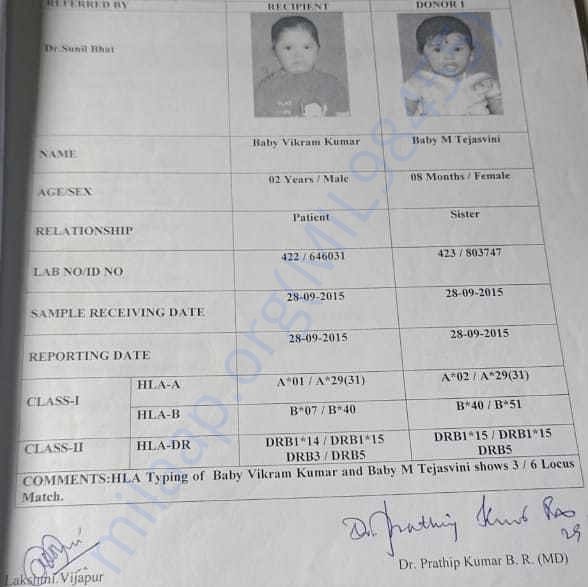 REFERRED BY RECIPIENT DONOR 1
Dr.Sunil Bhat
NAME Baby Vikram Kumar Baby M Tejasvini
AGE/SEX 02 Years / Male 08 Months / Female
RELATIONSHIP Patient Sister
LAB NO/ID NO 422 / 646031 423 / 803747
SAMPLE RECEIVING DATE 28-09-2015 28-09-2015
REPORTING DATE 28-09-2015 28-09-2015
CLASS-I HLA-A A*01 / A*29(31) A*02 / A*29(31)
HLA-B B*07 / B*40 B*40 / B*51
CLASS-II HLA-DR DRB1*14 / DRB1*15 DRB1*15 / DRB1*15
DRB3 / DRB5 DRB5
COMMENTS:HLA Typing of Baby Vikram Kumar and Baby M Tejasvini shows 3 / 6 Locus
Match.
Dr. Prathip Kumar Rao
29
Lakshmi.Vijapur
Dr. Prathip Kumar B. R. (MD)
milaap.org/(MIL984537)